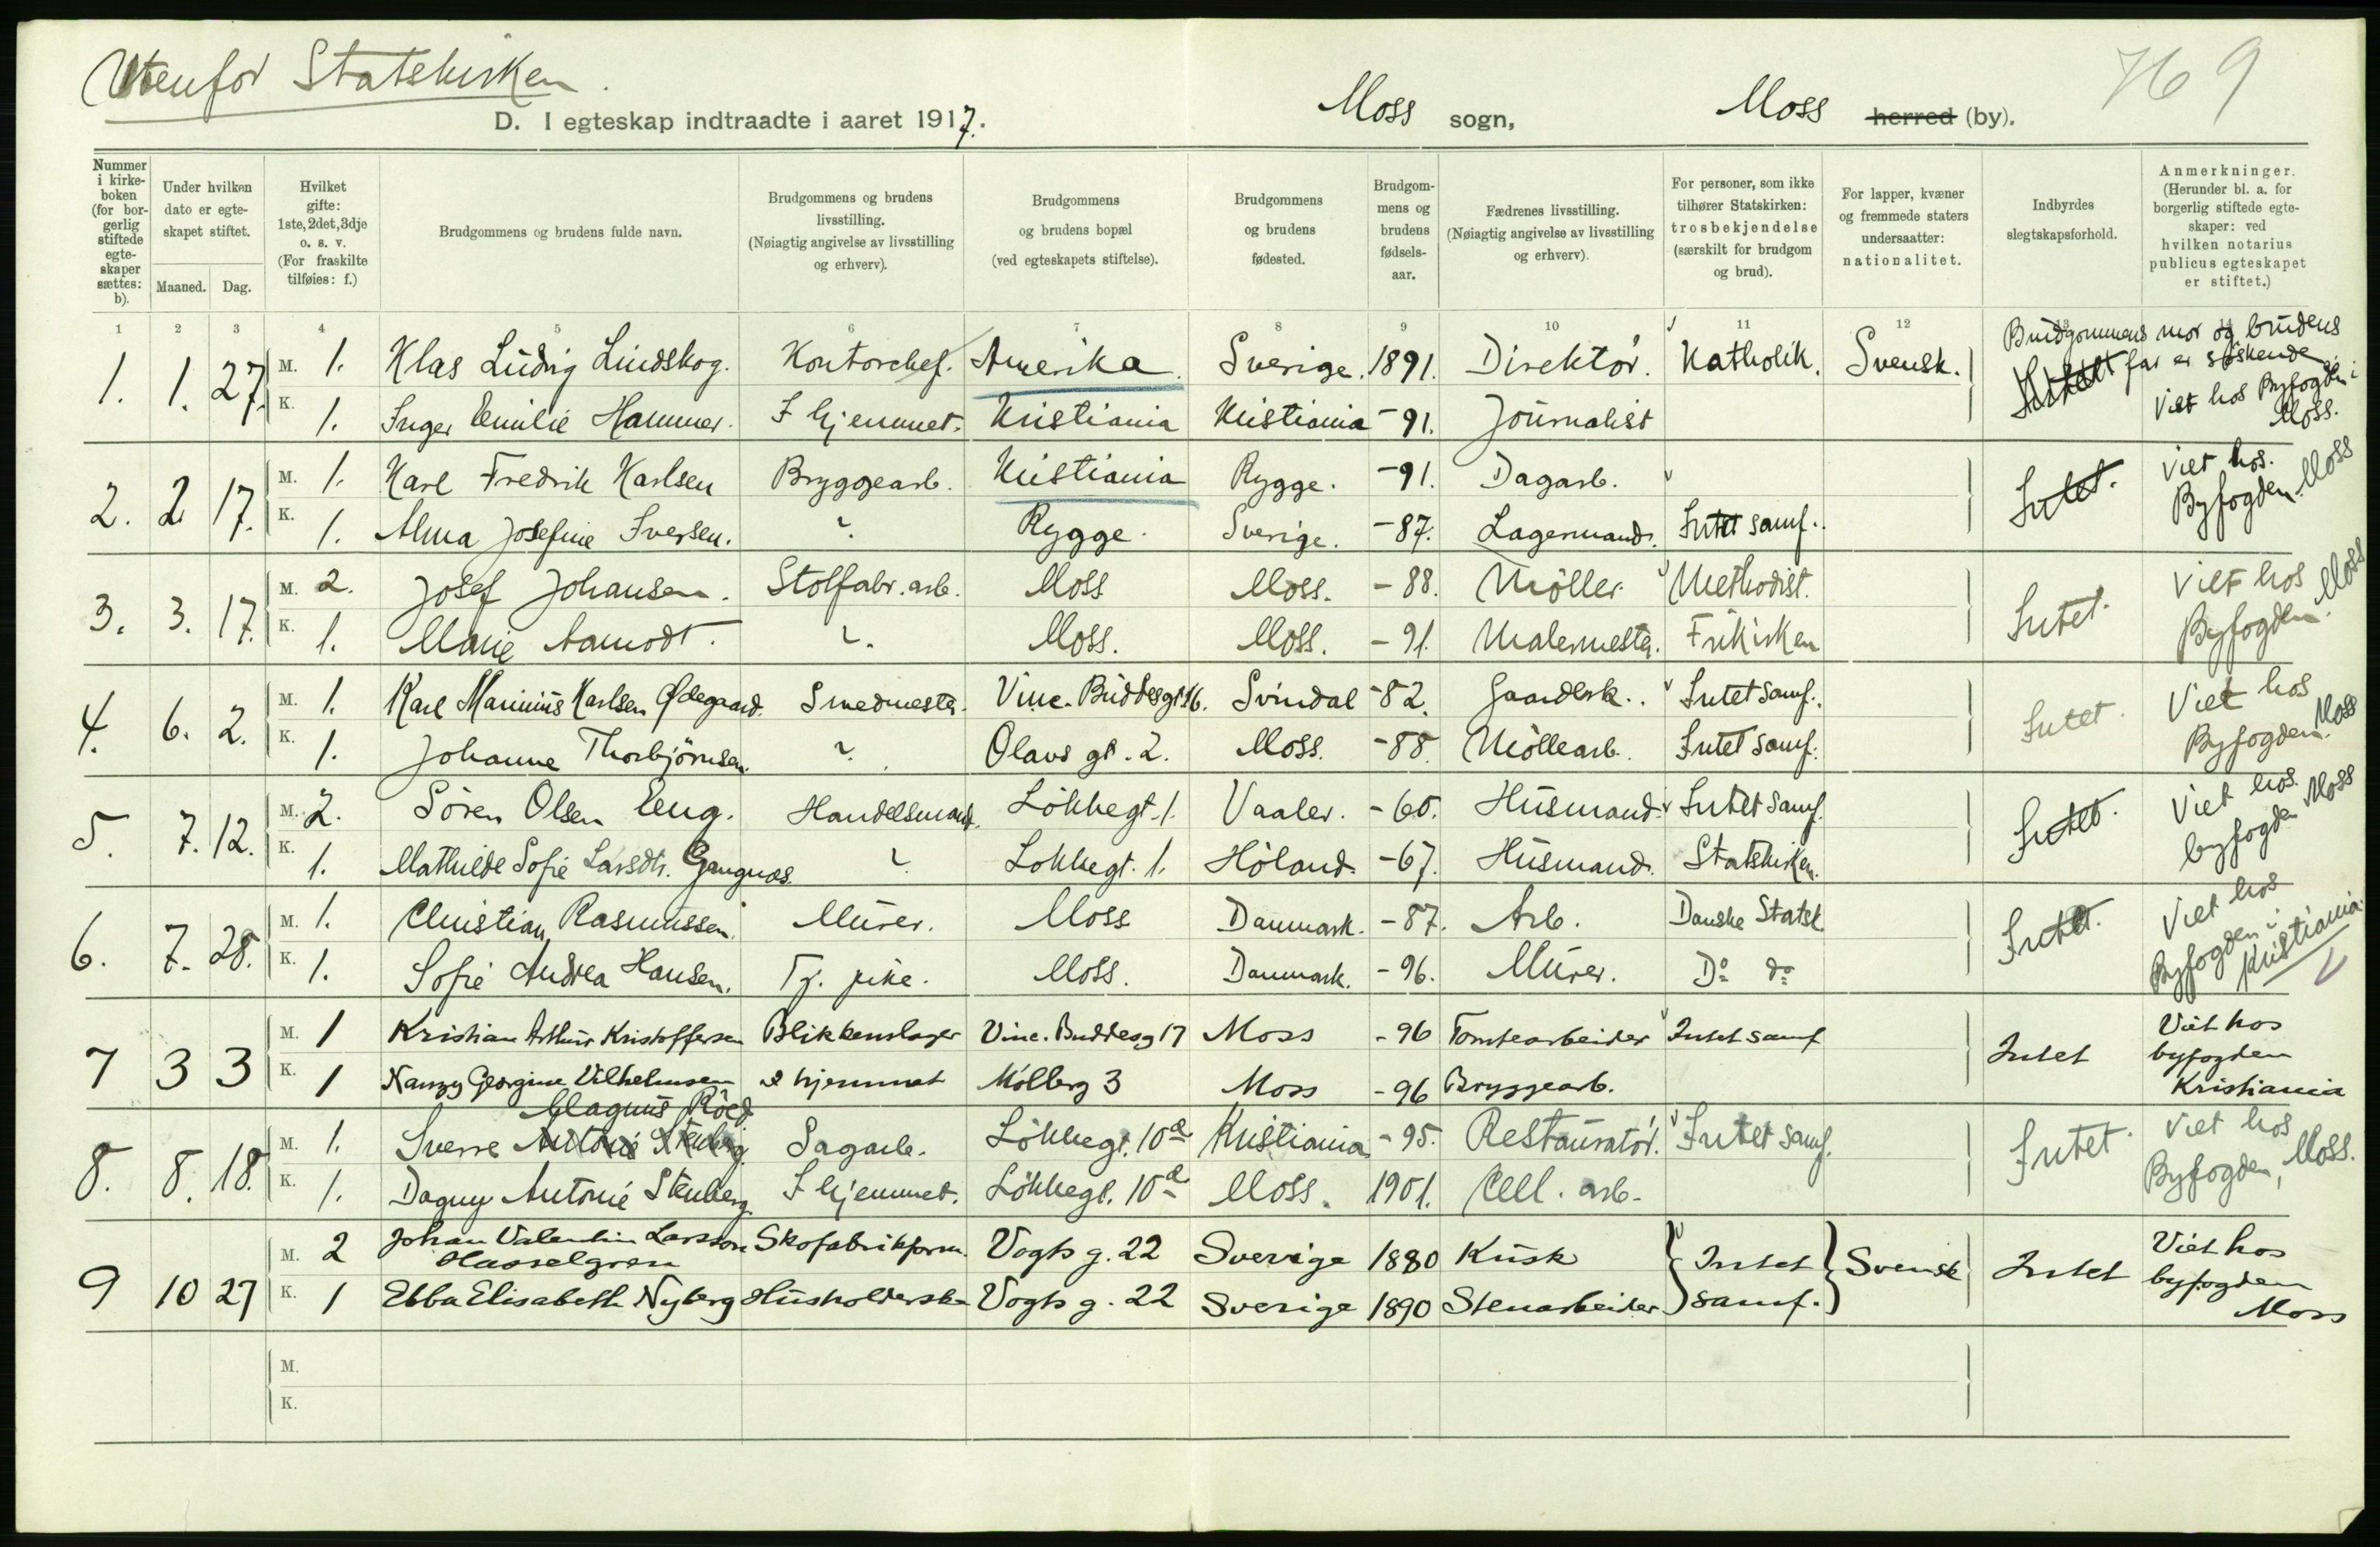 Utenfor Statskirken.
769
D. I egteskap indtraadte i aaret 1917. Moss sogn, Moss herred (by).
Nummer i kirke-boken (for bor-gerlig stiftede egte-skaper sættes: b).
Under hvilken dato er egte-skapet stiftet.
Maaned. Dag.
Hvilket gifte: 1ste, 2det, 3dje o. s. v. (For fraskilte tilføies: f.)
Brudgommens og brudens fulde navn.
Brudgommens og brudens livsstilling. (Nøiagtig angivelse av livsstilling og erhverv).
Brudgommens og brudens bopæl (ved egteskapets stiftelse).
Brudgommens og brudens fødested.
Brudgom-mens og brudens fødsels-aar.
Fædrenes livsstilling. (Nøiagtig angivelse av livsstilling og erhverv).
For personer, som ikke tilhører Statskirken: trosbekjendelse (særskilt for brudgom og brud).
For lapper, kvæner og fremmede staters undersaatter: nationalitet.
Indbyrdes slegtskapsforhold.
Anmerkninger. (Herunder bl. a. for borgerlig stiftede egte-skaper: ved hvilken notarius publicus egteskapet er stiftet.)
1 2 3 4 5 6 7 8 9 10 11 12 13 14
1. 1. 27. M. 1. Klas Ludvig Lindskog. Kontorchef. Amerika. Sverige. 1891. Direktör. Katholik. Svensk. Brudgommens mor og brudens far er söskende
K. 1. Inger Emilie Hammer. I hjemmet. Kristiania Kristiania -91. Journalist Viet hos Byfogden i Moss.
2. 2 17. M. 1. Karl Fredrik Karlsen Bryggearb. Kristiania Rygge. -91. Dagarb. Intet. Viet hos. Byfogden. Moss
K. 1. Alma Josefine Iversen. Rygge. Sverige. -87. Lagermand. Intet samf.
3. 3. 17. M. 2. Josef Johansen. Stolfabr. arb. Moss Moss. -88. Möller Methodist. Intet. Viet hos Byfogden. Moss
K. 1. Marie Aamodt. Moss. Moss. -91. Malermester. Frikirken
4. 6. 2. M. 1. Karl Marinius Karlsen Ødegaard. Smedmester. Vinc. Buddesgt 16. Svindal -82. Gaardbrk. Intet samf. Intet. Viet hos Byfogden. Moss
K. 1. Johanne Thorbjörnsen. Olavs gt. 2. Moss. -88. Möllearb. Intet samf.
5. 7. 12. M. 2. Sören Olsen Eng. Handelsmand. Lökkegt. 1. Vaaler. -60. Husmand. Intet samf. Intet. Viet hos. byfogden Moss
K. 1. Mathilde Sofie Larsdtr. Gangnæs. Lökkegt. 1. Höland. -67. Husmand. Statskirken.
6. 7. 28. M. 1. Christian Rasmussen. Murer. Moss Danmark. -87. Arb. Danske Statsk. Intet. Viet hos Byfogden i Kristiania.
K. 1. Sofie Andrea Hansen. Tj. pike. Moss. Danmark. -96. Murer. Do do
7 3 3 M. 1 Kristian Arthur Kristoffersen Blikkenslager Vinc. Buddesg 17 Moss -96 Tomtearbeider Intet samf Intet Viet hos byfogden Kristiania
K. 1 Nanzy Georgine Vilhelmsen I hjemmet Mölleberg 3 Moss -96 Bryggearb.
Magnus Röed
8. 8. 18. M. 1. Sverre Antonie Stenberg Sagarb. Lökkegt. 10a Kristiania -95. Restauratör. Intet samf. Intet. Viet hos Byfogden, Moss.
K. 1. Dagny Antonie Stenberg. I hjemmet. Lökkegt. 10a Moss. 1901. Cell. arb.
9 10 27 M. 2 Johan Valentin Larsson Hasselgren Skofabrikform. Vogts g. 22 Sverige 1880 Kusk Intet samf. Svensk Intet Viet hos byfogden Moss
K. 1 Ebba Elisabeth Nyberg Husholderske Vogts g. 22 Sverige 1890 Stenarbeider
M.
K.